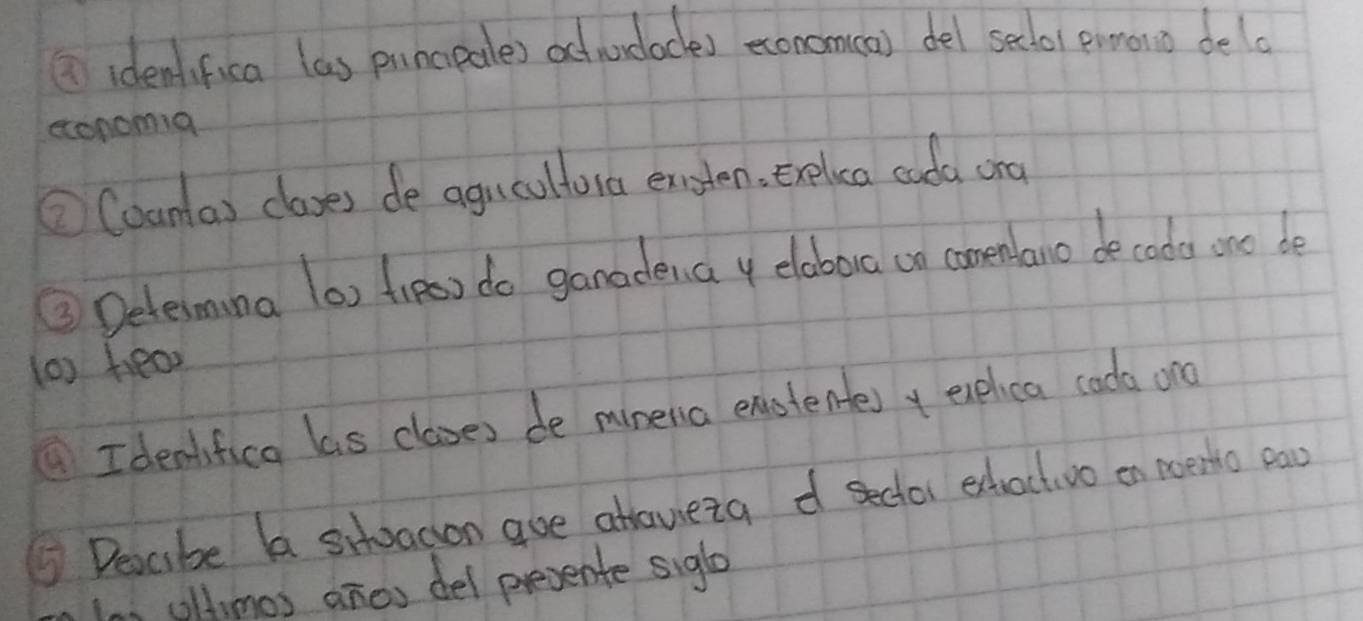 ① identifica las principales actividades economicas del sector primario de la
economia
② Cuantas clases de agricultura existen. Explica cada una
③ Determina los tipos de ganaderia y elabora un comentario de cada uno de
los tipos
④ Identifica las clases de mineria existentes y explica cada una
⑤ Describe la situacion que atravieza el sector extractivo en nuestro pais
en los ultimos años del presente siglo